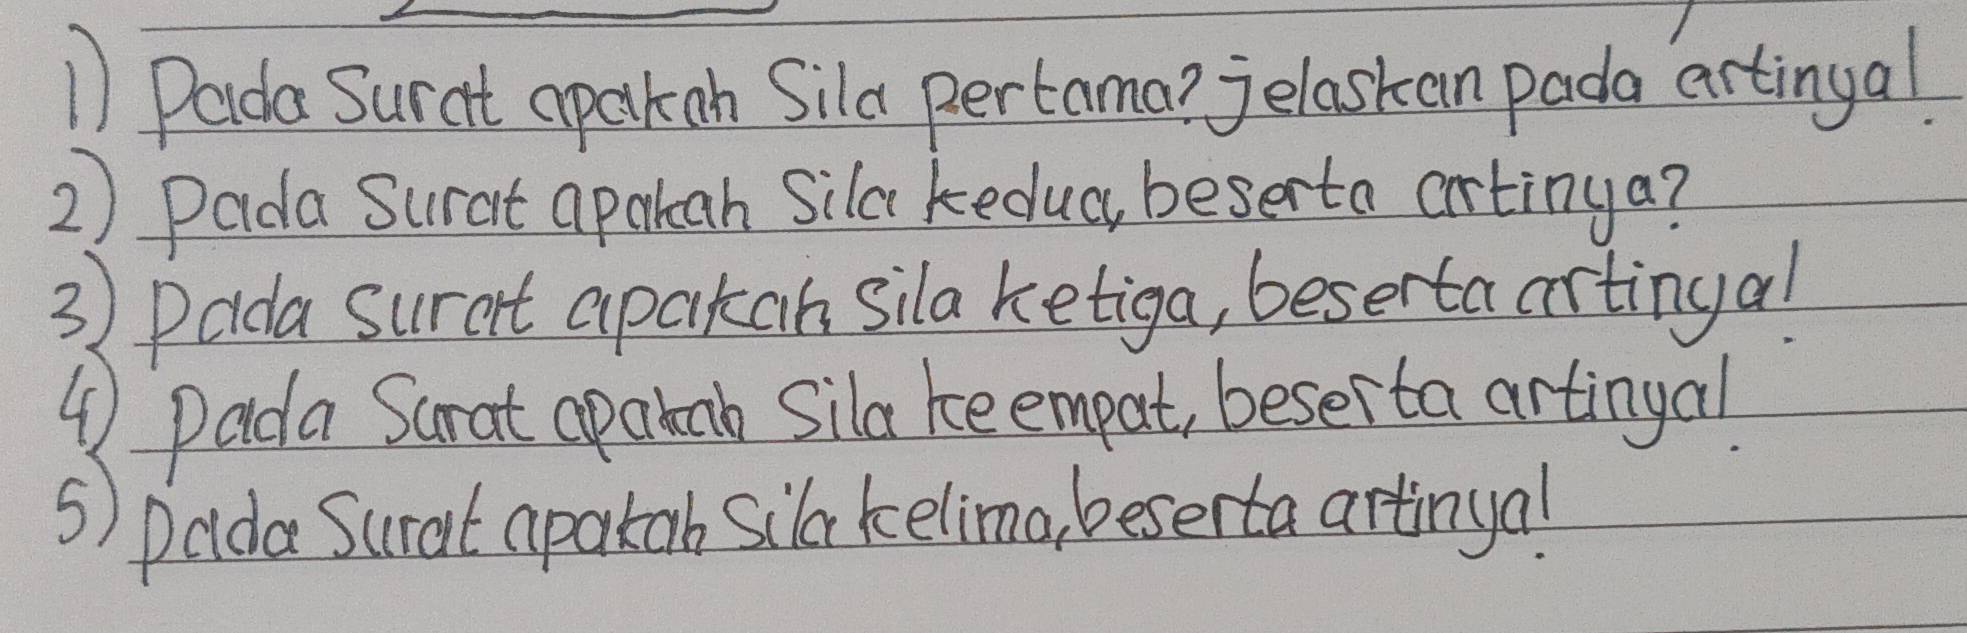 1) Pada Surat apakah Sila pertama? jelaskan pada artinya!
2) Pada Surat apakah Sila kedua, beserta artinya?
3) Pada Surat apakah Sila ketiga, beserta artinya!
4) Pada Surat apakah Sila keempat, beserta artinya!
5) Pada Surat apakah Sila kelima, beserta artinya!